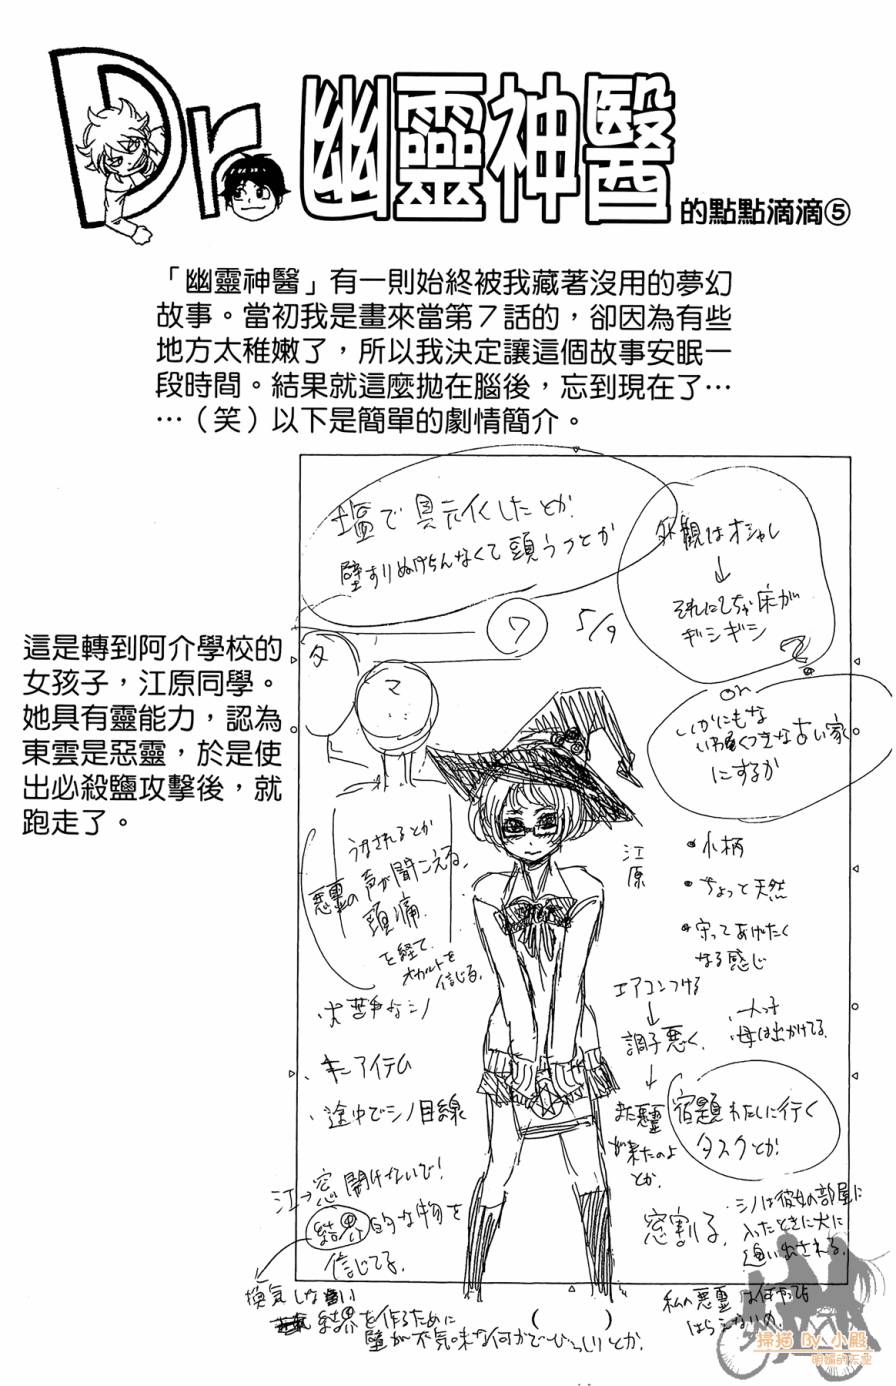 Dr.幽靈神醫的點點滴滴⑤
「幽靈神醫」有一則始終被我藏著沒用的夢幻
故事。當初我是畫來當第7話的，卻因為有些
地方太稚嫩了，所以我決定讓這個故事安眠一
段時間。結果就這麼拋在腦後，忘到現在了…
…（笑）以下是簡單的劇情簡介。
這是轉到阿介學校的
女孩子，江原同學。
她具有靈能力，認為
東雲是惡靈，於是使
出必殺鹽攻擊後，就
跑走了。
塩で具示化したとか
壁すりぬけらんなくて頭うつとか
外観はオシャレ
↓
それにしちゃ床が
ギシギシ
?
or
いかにもな
いわくつきな古い家
にするか
⑦ 5/9
タ
マ
うなされるとか
悪霊の声が聞こえる、
頭痛
を経て、
オカルトを
信じる。
江原
・小柄
・ちょっと天然
・守ってあげたく
なる感じ
・大苦手なシノ
・キーアイテム
・途中でシノ目線
エアコンつける
↓
調子悪く、
↓
また悪霊
が来たのよ
とか、
窓割る、
・一人っ子
・母は出かけてる、
宿題わたしに行く
タスクとか
江→窓開けないで！
結界的な物を
信じてる、
換気しない
結界を作るために
壁が不気味な何かでびっしりとか、
・シノは彼女の部屋に
入ったときに犬に
追い出される、
私の悪霊は何やっても
はらえないの、
( )
掃描 By 小殿